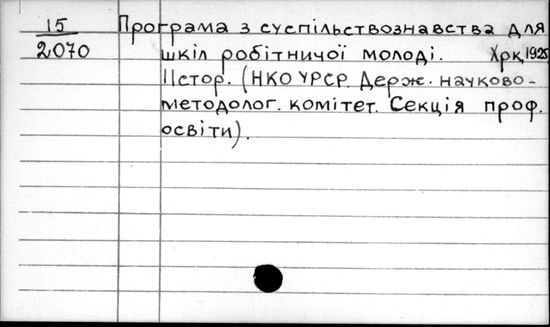 15
2070
Програма з суспільствознавства для
шкіл робітничої молоді. Хрк, 1925,
11стор. (НКО УРСР. Держ. науково-
методолог. комітет. Секція проф.
освіти).